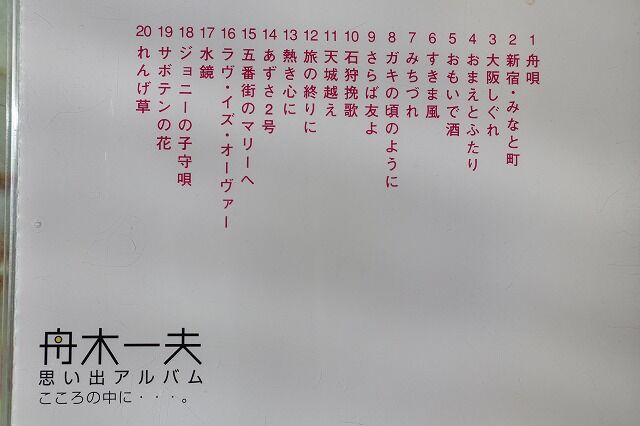 1 舟唄
2 新宿・みなと町
3 大阪しぐれ
4 おまえとふたり
5 おもいで酒
6 すきま風
7 みちづれ
8 ガキの頃のように
9 さらば友よ
10 石狩挽歌
11 天城越え
12 旅の終りに
13 熱き心に
14 あずさ2号
15 五番街のマリーへ
16 ラヴ・イズ・オーヴァー
17 水鏡
18 ジョニーの子守唄
19 サボテンの花
20 れんげ草
舟木一夫
思い出アルバム
こころの中に・・・。